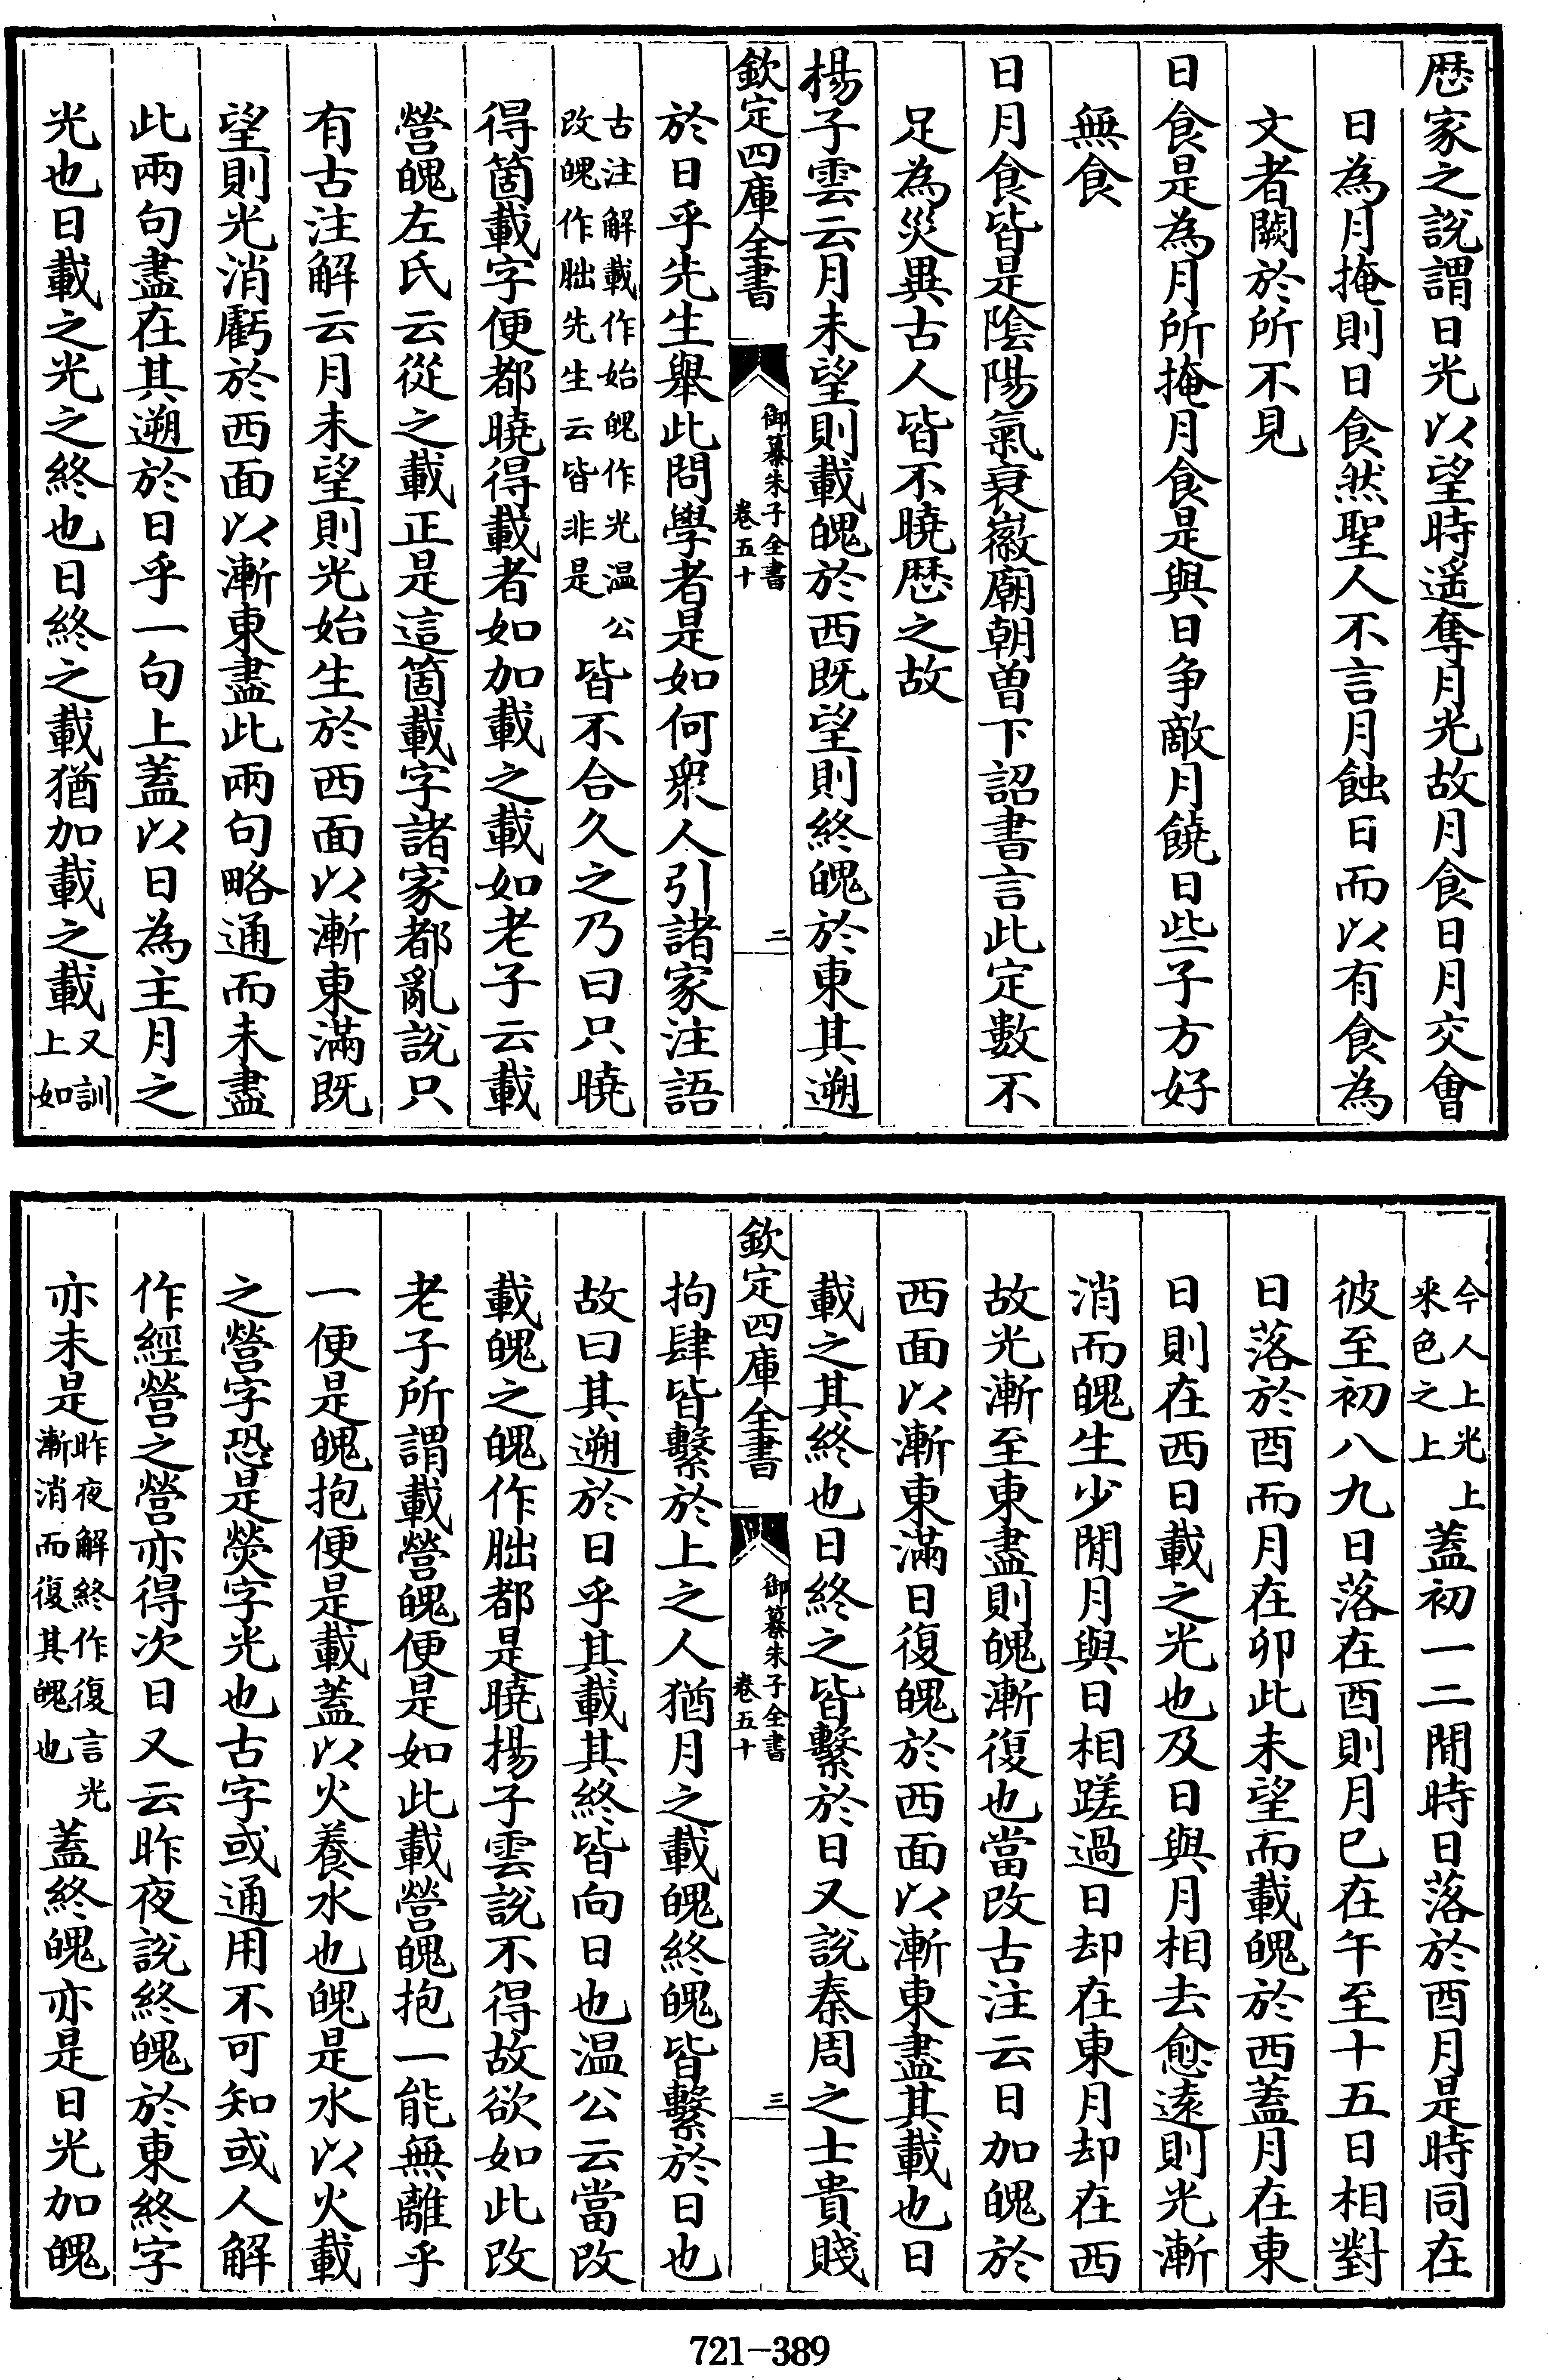 厯家之說謂日光以望時遥奪月光故月食日月交會
日為月掩則日食然聖人不言月蝕日而以有食為
文者闕於所不見
日食是為月所掩月食是與日争敵月饒日些子方好
無食
日月食皆是陰陽氣衰徽廟朝曽下詔書言此定數不
足為災異古人皆不曉厯之故
楊子雲云月未望則載魄於西既望則終魄於東其遡
欽定四庫全書
御纂朱子全書
卷五十
二
於日乎先生舉此問學者是如何衆人引諸家注語
古注解載作始魄作光温公
改魄作朏先生云皆非是
皆不合久之乃曰只曉
得箇載字便都曉得載者如加載之載如老子云載
營魄左氏云從之載正是這箇載字諸家都亂說只
有古注解云月未望則光始生於西面以漸東滿既
望則光消虧於西面以漸東盡此兩句略通而未盡
此兩句盡在其遡於日乎一句上蓋以日為主月之
光也日載之光之終也日終之載猶加載之載
又訓
上如
今人上光上
采色之上
蓋初一二閒時日落於酉月是時同在
彼至初八九日落在酉則月已在午至十五日相對
日落於酉而月在卯此未望而載魄於西蓋月在東
日則在西日載之光也及日與月相去愈逺則光漸
消而魄生少閒月與日相蹉過日却在東月却在西
故光漸至東盡則魄漸復也當改古注云日加魄於
西面以漸東滿日復魄於西面以漸東盡其載也日
載之其終也日終之皆繫於日又說秦周之士貴賤
欽定四庫全書
御纂朱子全書
卷五十
三
拘肆皆繫於上之人猶月之載魄終魄皆繫於日也
故曰其遡於日乎其載其終皆向日也温公云當改
載魄之魄作朏都是曉揚子雲說不得故欲如此改
老子所謂載營魄便是如此載營魄抱一能無離乎
一便是魄抱便是載蓋以火養水也魄是水以火載
之營字恐是熒字光也古字或通用不可知或人解
作經營之營亦得次日又云昨夜說終魄於東終字
亦未是
昨夜解終作復言光
漸消而復其魄也
蓋終魄亦是日光加魄
721-389